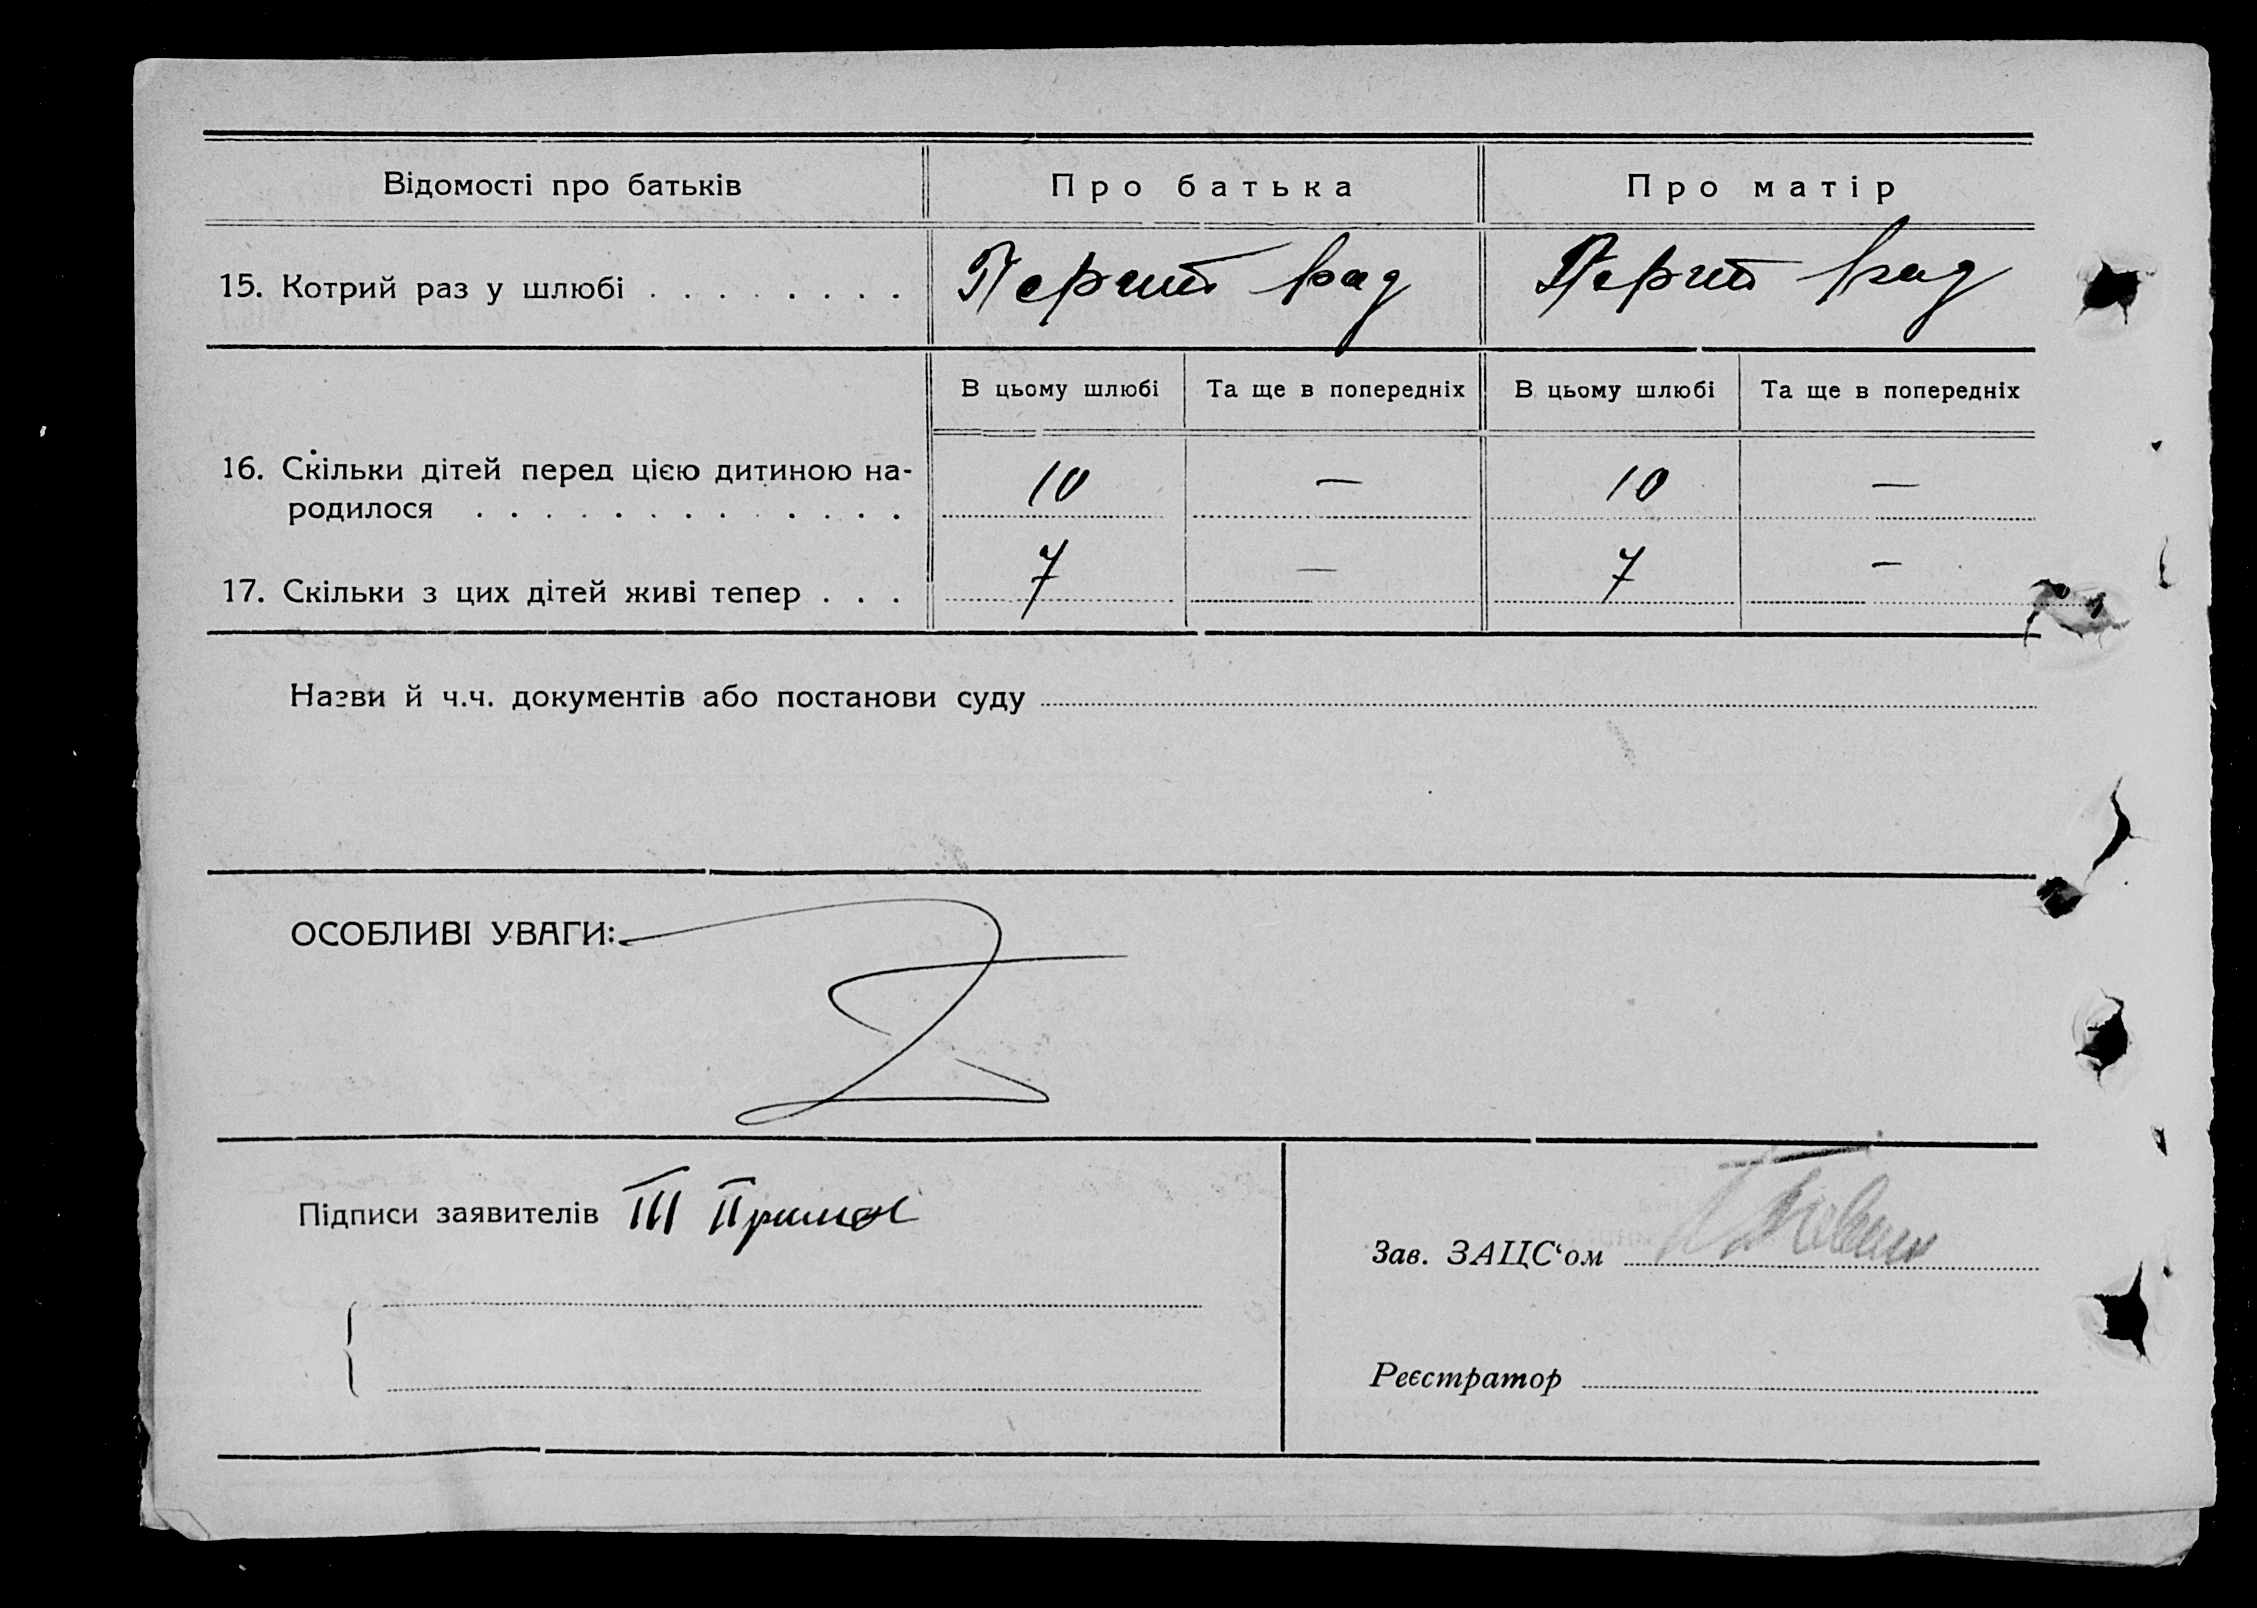 Відомості про батьків Про батька Про матір
15. Котрий раз у шлюбі . . . . . . . . Перший раз Перший раз
В цьому шлюбі Та ще в попередніх В цьому шлюбі Та ще в попередніх
16. Скільки дітей перед цією дитиною на-
родилося . . . . . . . . . . . . . 10 — 10 —
17. Скільки з цих дітей живі тепер . . . 7 — 7 —
Назви й ч.ч. документів або постанови суду
ОСОБЛИВІ УВАГИ:
Підписи заявителів
Зав. ЗАЦС‘ом
Реєстратор